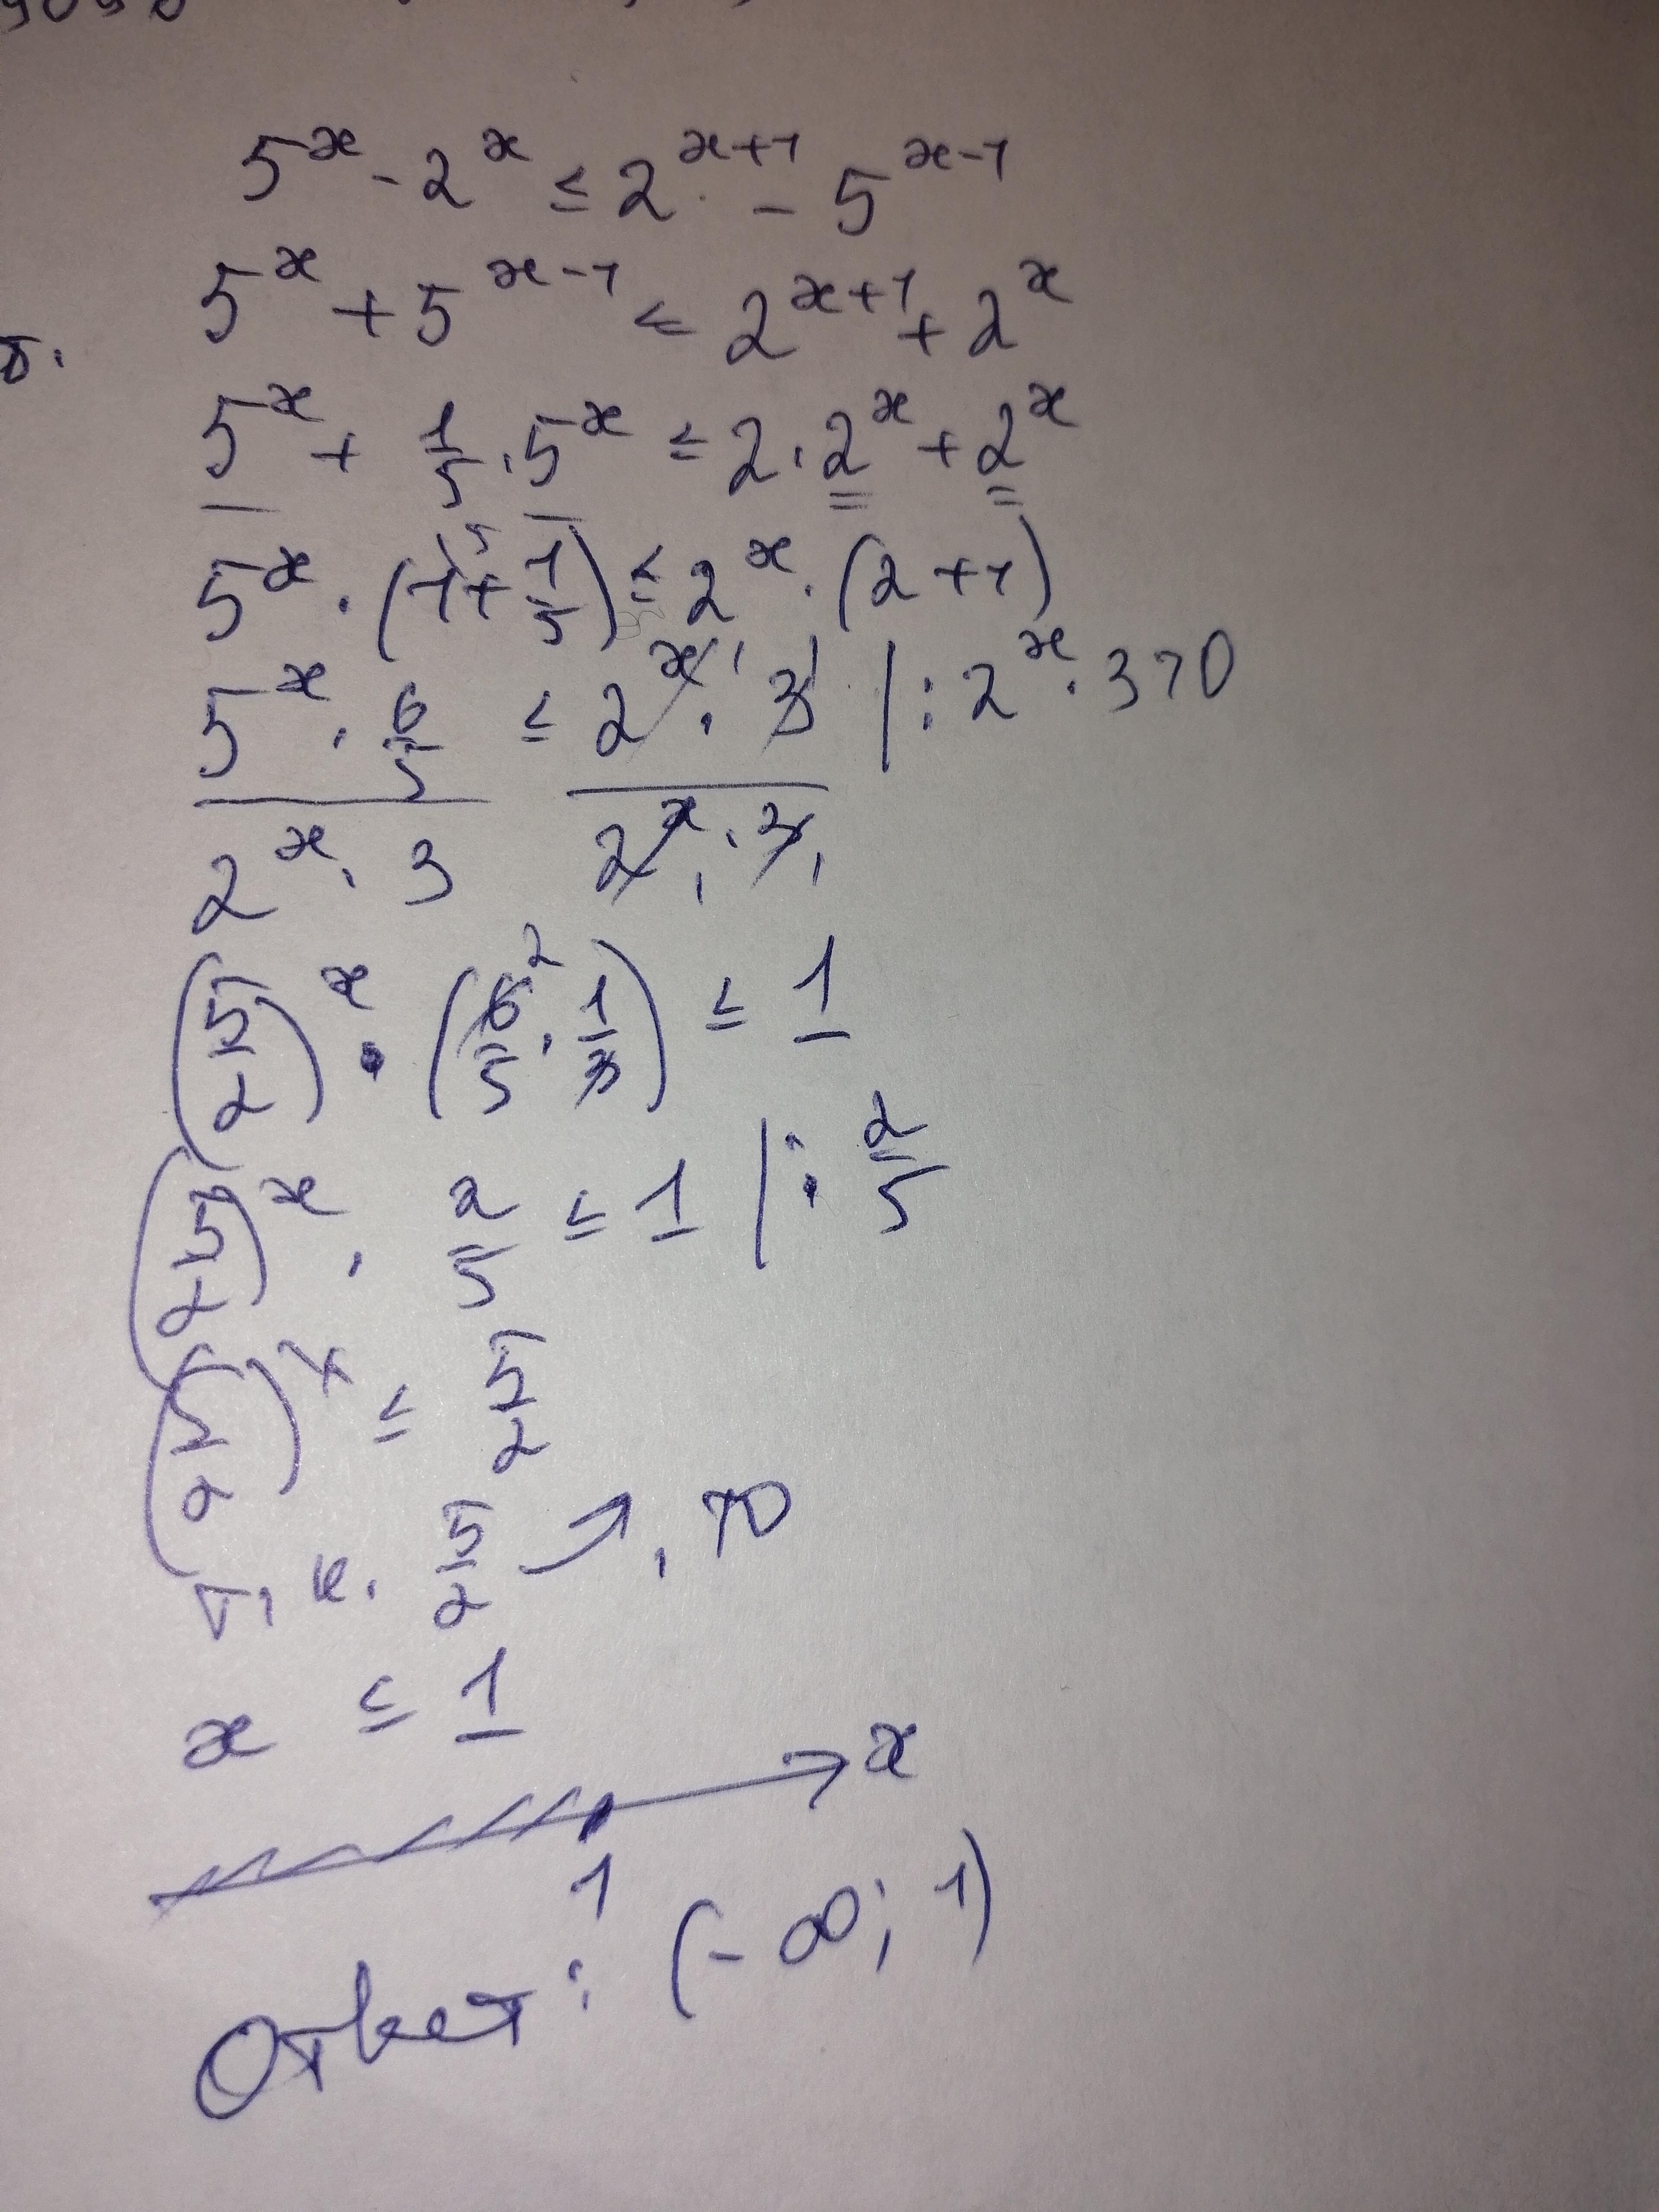 5^x - 2^x ≤ 2^(x+1) - 5^(x-1)
5^x + 5^(x-1) ≤ 2^(x+1) + 2^x
5^x + 1/5 · 5^x ≤ 2 · 2^x + 2^x
5^x · (1 + 1/5) ≤ 2^x · (2+1)
5^x · 6/5 ≤ 2^x · 3 | : 2^x · 3 > 0
2^x · 3 2^x · 3
(5/2)^x · (6/5 · 1/3) ≤ 1
(5/2)^x · 2/5 ≤ 1 | : 2/5
(5/2)^x ≤ 5/2
т. к. 5/2 ↗, >0
x ≤ 1
x
1
Ответ: (-∞; 1)